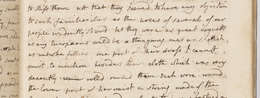 to suffer them not that they seem'd to have any objection
to such familiarities as the wives of several of our
people evidently proved but they were as great coquets
as any Europeans could be and the young ones as skittish
as unbroke fillies one part of their dress I cannot
omit to mention besides their cloth which was very
decently roll'd round them each wore round
the lower part of her waist a string made of the